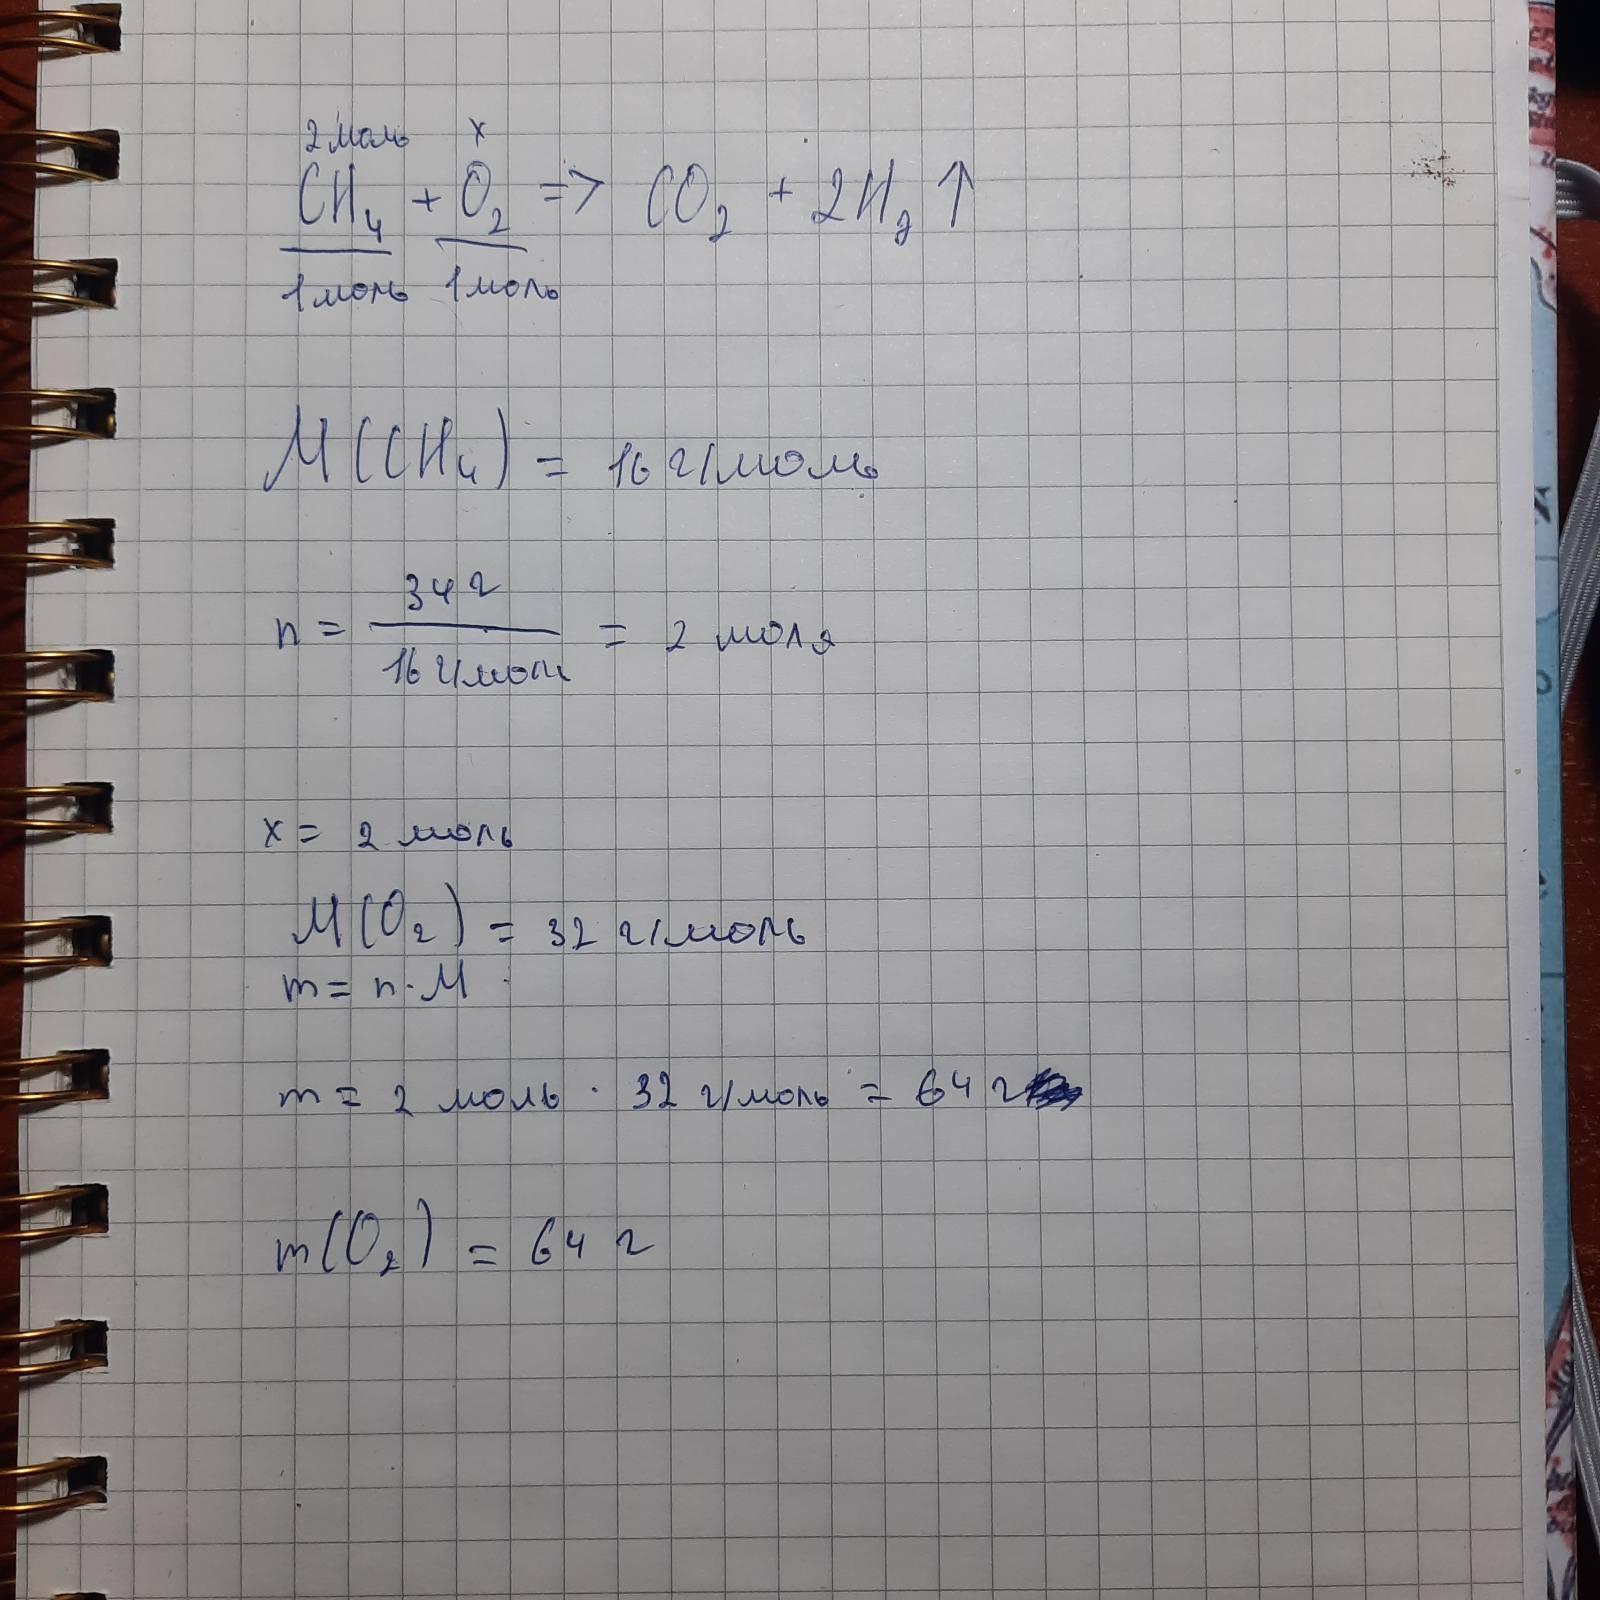 2 моль x
CH₄ + O₂ => CO₂ + 2H₂ ↑
1 моль 1 моль
M(CH₄) = 16 г/моль
n = 34 г / 16 г/моль = 2 моля
x = 2 моль
M(O₂) = 32 г/моль
m = n · M
m = 2 моль · 32 г/моль = 64 г
m(O₂) = 64 г